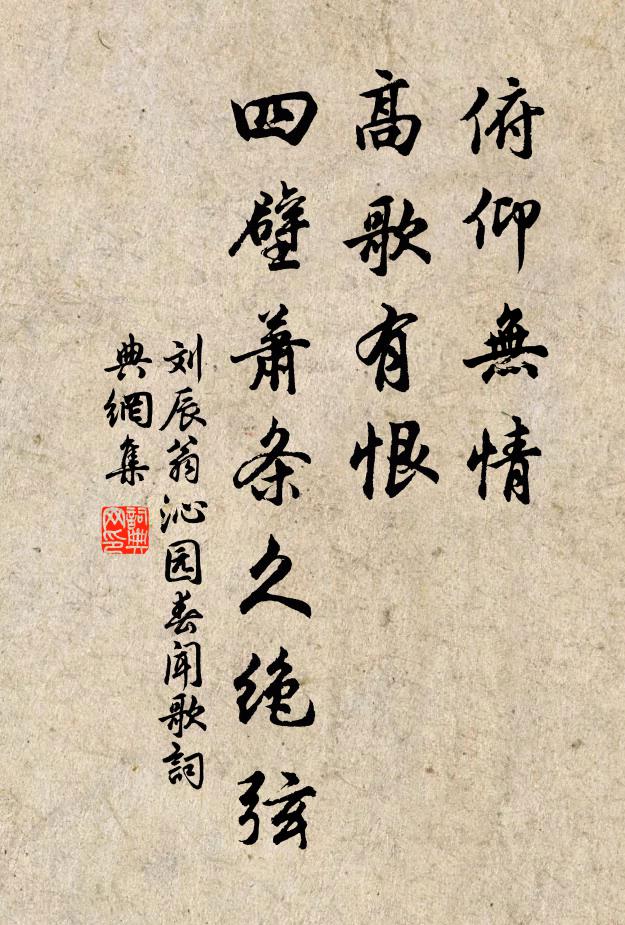 俯仰無情
高歌有恨
四壁蕭条久绝弦
刘辰翁沁园春闻歌詞
典網集
詞典网印